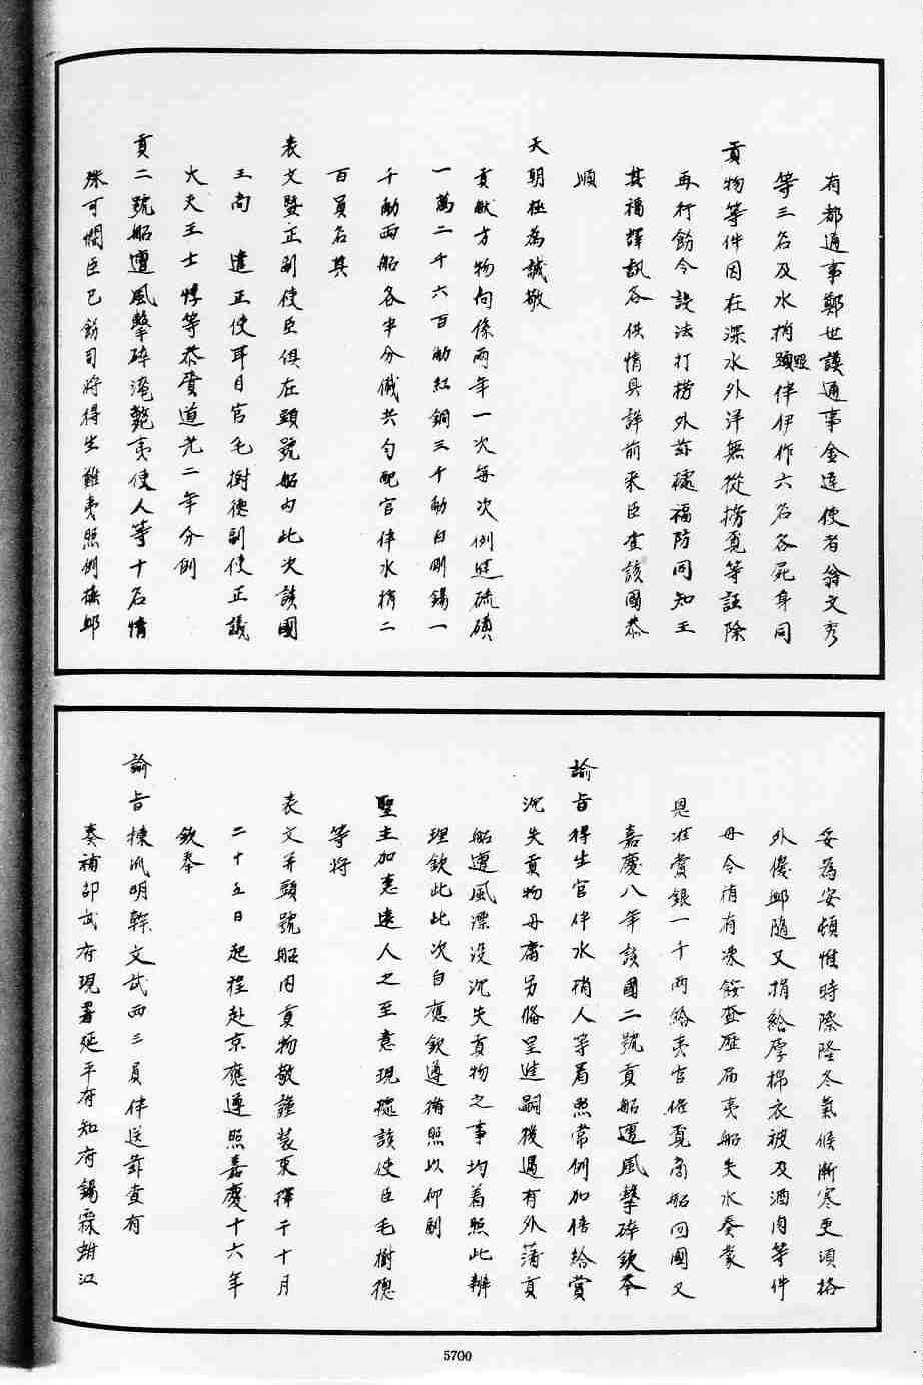 有都通事鄭世謨通事金達使者翁文秀
等三名及水梢顕照伴伊作六名各死身同
貢物等件因在深水外洋無從撈覓等話除
再行飭令設法打撈外茲據福防同知王
其福譯訊各供情具詳前来臣查該國恭
順
天朝極為誠敬
貢獻方物向係兩年一次每次例進硫磺
一萬二千六百觔紅銅三千觔白剛錫一
千觔兩船各半分儎共勻配官伴水梢二
百員名其
表文暨正副使臣俱在頭號船内此次該國
王尚 遣正使耳目官毛樹德副使正議
大夫王士惇等恭賫道光二年分例
貢二號船遭風擊碎淹斃夷使人等十名情
殊可憫臣已飭司将得生難夷照例撫卹
妥為安頓惟時際隆冬氣候漸寒更須格
外優卹隨又捐給厚棉衣被及酒肉等件
毋令稍有凍餒查歷届夷船失水奏蒙
恩准賞銀一千兩給夷官僱覓商船回國又
嘉慶八年該國二號貢船遭風擊碎欽奉
諭旨得生官伴水梢人等着照常例加倍給賞
沉失貢物毋庸另備呈進嗣後遇有外藩貢
船遭風漂没沉失貢物之事均着照此辦
理欽此此次自應欽遵循照以仰副
聖主加惠遠人之至意現據該使臣毛樹德
等将
表文并頭號船内貢物敬謹裝束擇于十月
二十五日起程赴京應遵照嘉慶十六年
欽奉
諭旨揀派明幹文武西三員伴送茲查有
奏補邵武府現署延平府知府錫霖蚶江
5700